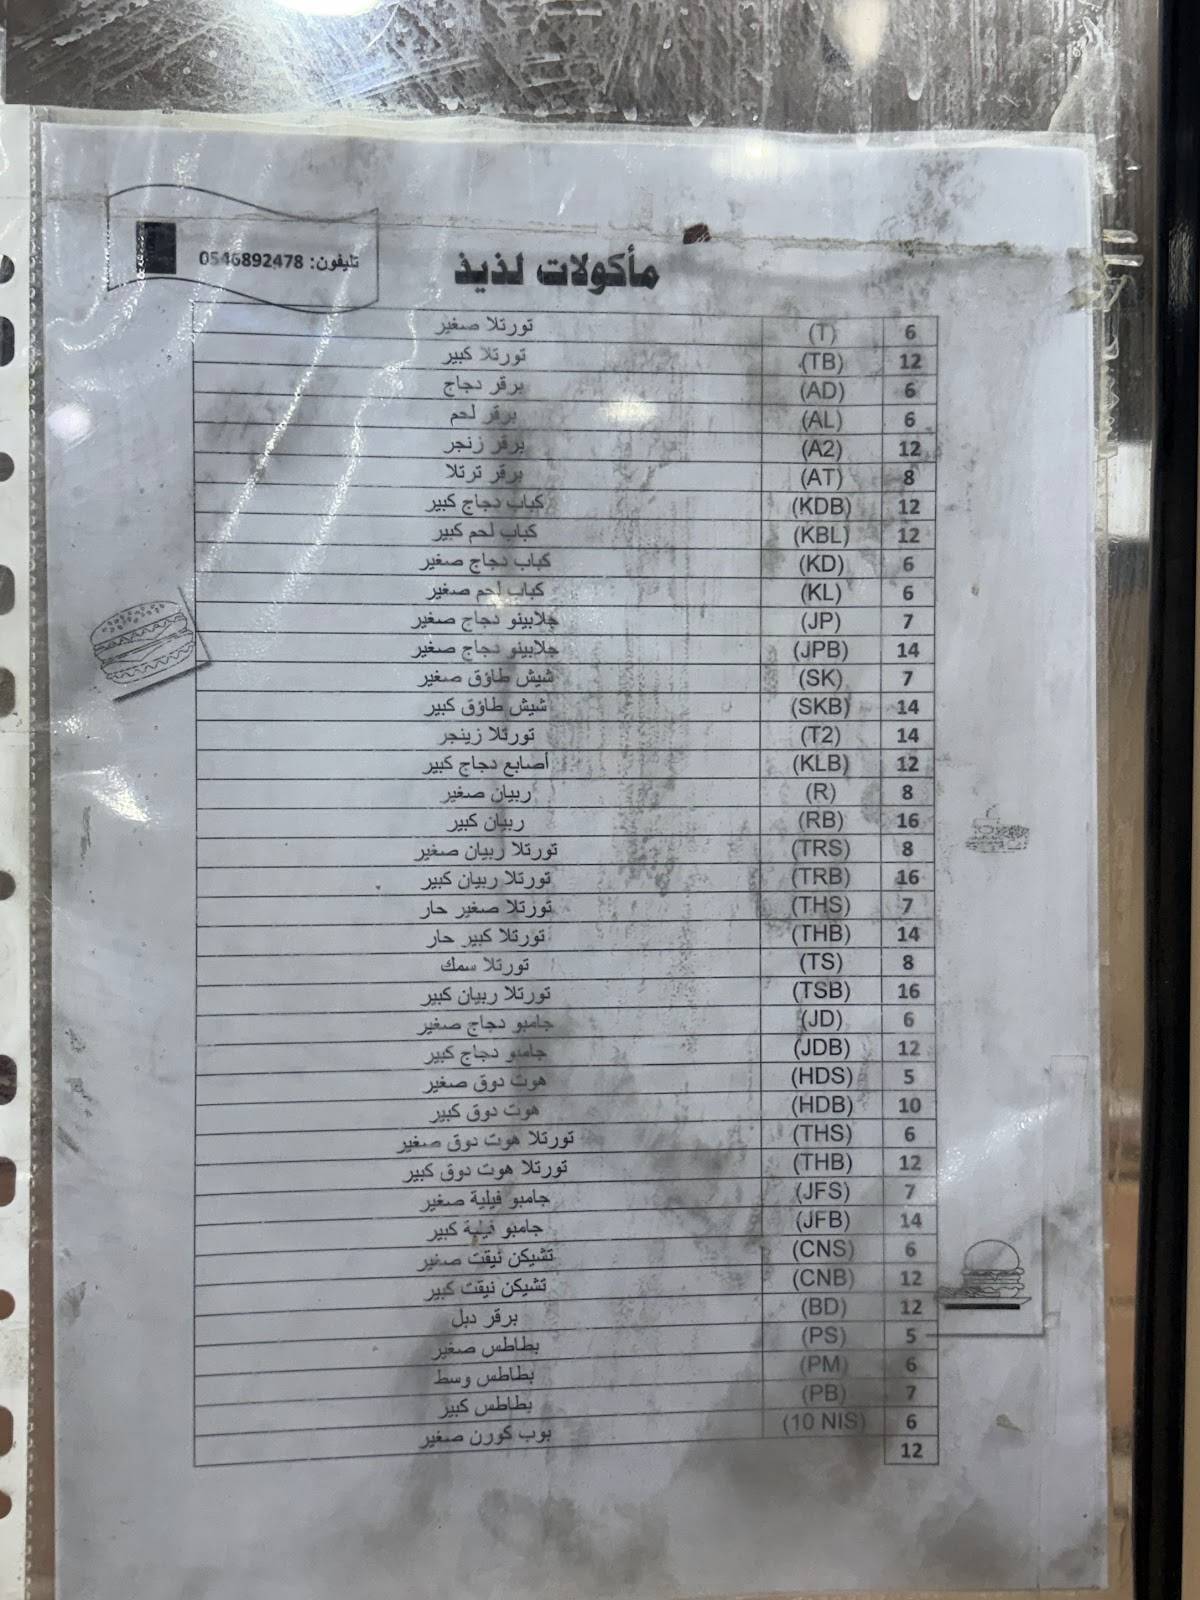 مأكولات لذيذ
تليفون: 0546892478
تورتلا صغير (T) 6
تورتلا كبير (TB). 12
برقر دجاج (AD) 6
برقر لحم (AL) 6
برقر زنجر (A2) 12
برقر ترتلا (AT) 8
كباب دجاج كبير (KDB) 12
كباب لحم كبير (KBL) 12
كباب دجاج صغير (KD) 6
كباب لحم صغير (KL) 6
جلابينو دجاج صغير (JP) 7
جلابينو دجاج صغير (JPB) 14
شيش طاؤق صغير (SK) 7
شيش طاؤق كبير (SKB) 14
تورتلا زينجر (T2) 14
أصابع دجاج كبير (KLB) 12
ربيان صغير (R) 8
ربيان كبير (RB) 16
تورتلا ربيان صغير (TRS) 8
تورتلا ربيان كبير (TRB) 16
تورتلا صغير حار (THS) 7
تورتلا كبير حار (THB) 14
تورتلا سمك (TS) 8
تورتلا ربيان كبير (TSB) 16
جامبو دجاج صغير (JD) 6
جامبو دجاج كبير (JDB) 12
هوت دوق صغير (HDS) 5
هوت دوق كبير (HDB) 10
تورتلا هوت دوق صغير (THS) 6
تورتلا هوت دوق كبير (THB) 12
جامبو فيلية صغير (JFS) 7
جامبو فيلية كبير (JFB) 14
تشيكن نيقت صغير (CNS) 6
تشيكن نيقت كبير (CNB) 12
برقر دبل (BD) 12
بطاطس صغير (PS) 5
بطاطس وسط (PM) 6
بطاطس كبير (PB) 7
بوب كورن صغير (10 NIS) 6
12